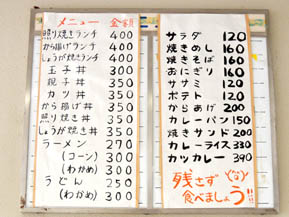 メニュー 金額
照り焼きランチ 400
から揚げランチ 400
しょうが焼きランチ 400
玉子丼 300
親子丼 350
カツ丼 350
から揚げ丼 350
照り焼き丼 350
しょうが焼き丼 350
ラーメン 270
(コーン) 300
(わかめ) 300
うどん 250
(わかめ) 300
サラダ 120
焼きめし 160
焼きそば 160
おにぎり 160
ササミ 120
ポテト 120
からあげ 200
カレーパン 150
焼きサンド 200
カレーライス 330
カツカレー 390
残さず
食べましょう!!